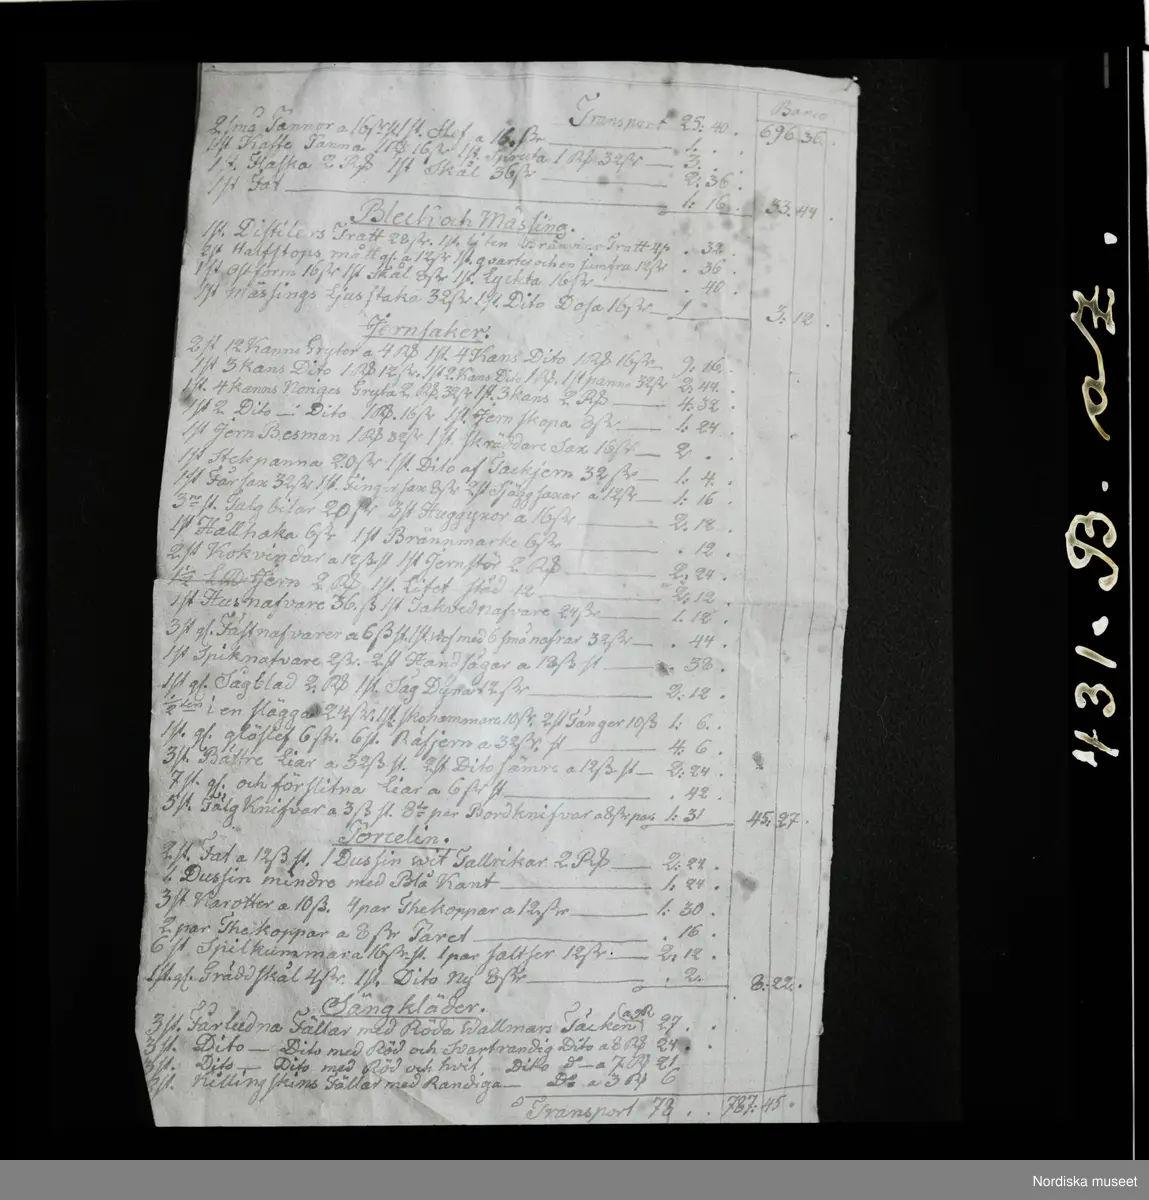 Banco
Transport 25:40. 696 36.
2 små Kannor a 16 sr 1 st. Stef a 16. sr 1. . .
1 st Kaffe Panna 1 Rd 16 sr 1 st. Spruta 1 Rd 32 sr 3. .
1 st. Flaska 2 Rd 1 st Skål 36 sr 2: 36 .
1 st Fat 1: 16 . 33. 44 .
Bleck och Mässing.
1 st. Distilers Tratt 28 sr. 1 st. liten Bränvins Tratt . 32 .
2 st Halfstops mått gl. a 12 sr 1 st. qvarter och en jumfru 12 sr . 36 .
1 st ostform 16 sr 1 st Skål 8 sr 1 st. Lyckta 16 sr . 40 .
1 st Mässings Ljusstaka 32 sr 1 st. Dito Dosa 16 sr 1 3: 12 .
Jernsaker.
2 st 12 Kanns Grytor a 4 Rd 1 st. 4 Kans Dito 1 Rd 16 sr 9: 16 .
1 st 3 kans Dito 1 Rd 12 sr. 1 st 2 Kans Dito 1 Rd. 1 st panna 32 sr 2: 44 .
1 st. 4 kanns Noriges Gryta 2 Rd 32 sr 1 st. 3 kans 2 Rd 4: 32 .
1 st 2 Dito — Dito 1 Rd. 16 sr 1 st. Jern skopa 8 sr 1: 24
1 st Jern Besman 1 Rd 32 sr 1 st. Skräddare Sax 16 sr 2 . .
1 st Stekpanna 20 sr 1 st. Dito af Tackjern 32 sr 1: 4 .
1 st Får sax 32 sr 1 st. Finger sax 8 sr 2 st a 12 sr 1: 16 .
3ne st. Talg bilar 20 sr 3 st Huggyxor a 16 sr 2: 18 .
1 st Hållhaka 6 sr 1 st Brännmärke 6 sr . 12 .
2 st a 12 ß st 1 st Jernstör 2 Rd 2: 24 .
Jern 2 Rd 1 st. Litet städ 12 2: 12 .
1 st Husnafvare 36. ß 1 st Takvednafvare 24 sr 1. 12 .
3 st gl. Fästnafvarer a 6 ß st. 1 st. med 6 små nafrar 32 sr . 44 .
1 st Spiknafvare 2 sr. 2 st Handsågar a 18 ß st . 38 .
1 st gl. Sågblad 2. Rd 1 st. Såg 12 sr 2: 12 .
en slägga 24 sr. 1 st. skohammare 10 sr 2 st Tänger 10 ß 1: 6 .
1 st. gl. glöslef 6 sr. 6 st. Räfsjern a 32 sr. st 4: 6 .
3 st. Bättre Liar a 32 ß st. 2 st Dito sämre a 12 ß st 2: 24 .
7 st. gl. och förslitna Liar a 6 sr st . 42 .
5 st. Tälg Knifvar a 3 ß st. 8 par Bordknifvar a 8 sr par 1: 31 45: 27 .
Porcelin.
2 st. Fat a 12 ß st. 1 Dussin wit Tallrikar 2 Rd 2: 24 .
1. Dussin mindre med Blå Kant 1: 24 .
3 st Karotter a 10 ß. 4 par Thekoppar a 12 sr 1: 30 .
2 par Thekoppar a 8 sr Paret . 16 .
6 st Spilkummar a 16 sr st. 1 par saltser 12 sr. 2: 12 .
1 st. gl. Gräddskål 4 sr. 1 st. Dito Ny 8 sr . 2. 8: 22.
Sängkläder.
3 st. Fårledna Fällar med Röda Wallmars Täcken a 9 R 27 . .
3 st. Dito — Dito med Röd och Svartrandig Dito a 8 Rd 24 . .
3 st. Dito — Dito med Röd och hvit Dito do — a 7 Rd 21
2 st. Killingskins Fällar med Randiga — Do a 3 Rd 6
Transport 78 . . 787: 45 .
431. B. a Z.
Nordiska museet